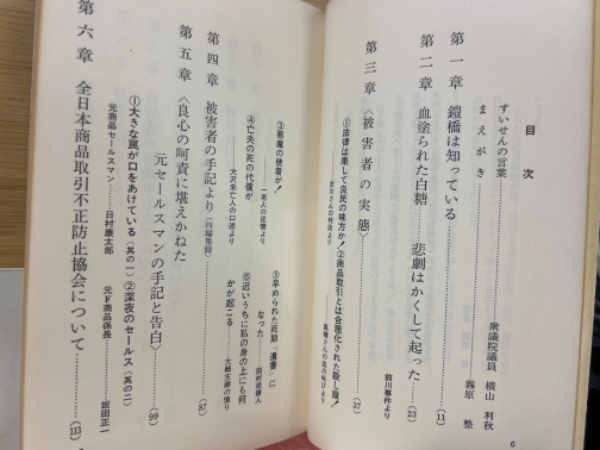 目次
すいせんの言葉 衆議院議員 横山利秋
まえがき 霧原 整
第一章 鎧橋は知っている (11)
第二章 血塗られた白糖――悲劇はかくして起った (23)
第三章 〈被害者の実態〉 (37)
①法律は果して良民の味方か!
②商品取引とは合理化された殺し屋!
前川事件より
③悪魔の使者が!
一老人の述懐より
④亡夫の死の代償が
大沢未亡人の口述より
⑤早められた死期「遺書」に
なった 田村老婦人
⑥近いうちに私の身の上にも何
かが起こる
第四章 被害者の手記より (四編集録) (87)
第五章 〈良心の呵責に堪えかねた
元セールスマンの手記と告白〉 (99)
①大きな罠が口をあけている (其の一)
元商品セールスマン 日村康太郎
②深夜のセールス (其の二)
元F商品係長 坂田正一
第六章 全日本商品取引不正防止協会について (113)
6